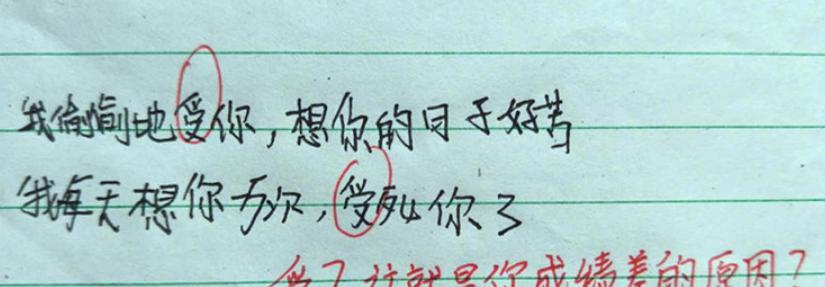 我偷偷地受你，想你的日子好苦
我每天想你万次，受死你了
这就是你成绩差的原因？